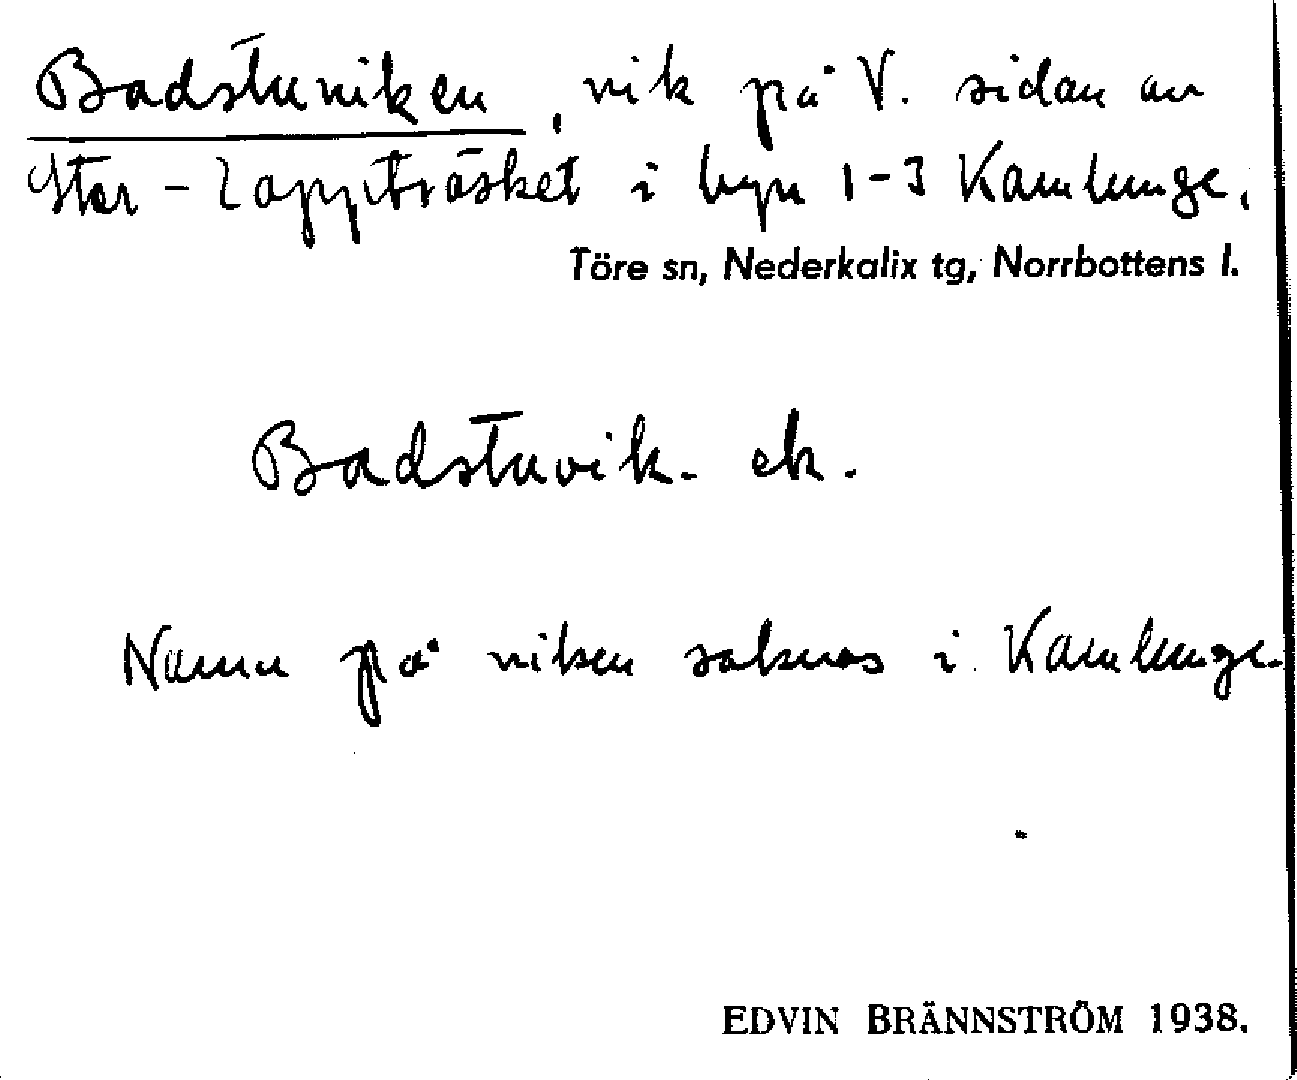 Badstuviken, vik på V. sidan av
Stor-Lappträsket i byn 1-3 Kamlunge.
Töre sn, Nederkalix tg, Norrbottens l.
Badstuvik. ek.
Namn på viken saknas i Kamlunge.
EDVIN BRÄNNSTRÖM 1938.